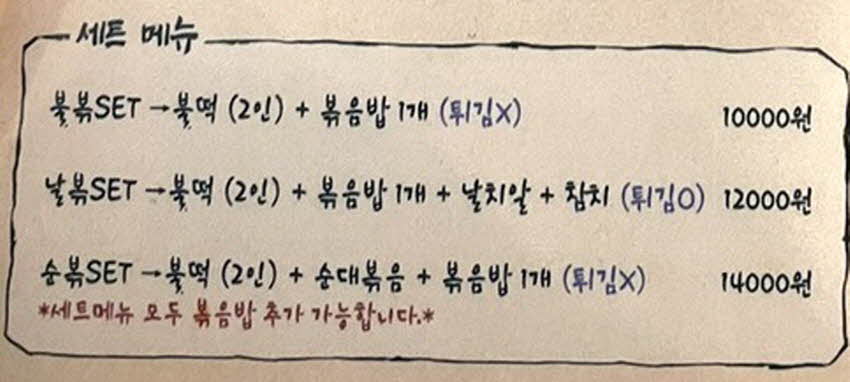 세트 메뉴
불볶SET →불떡 (2인) + 볶음밥 1개 (튀김X) 10000원
날볶SET →불떡 (2인) + 볶음밥 1개 + 날치알 + 참치 (튀김O) 12000원
순볶SET →불떡 (2인) + 순대볶음 + 볶음밥 1개 (튀김X) 14000원
*세트메뉴 모두 볶음밥 추가 가능합니다.*